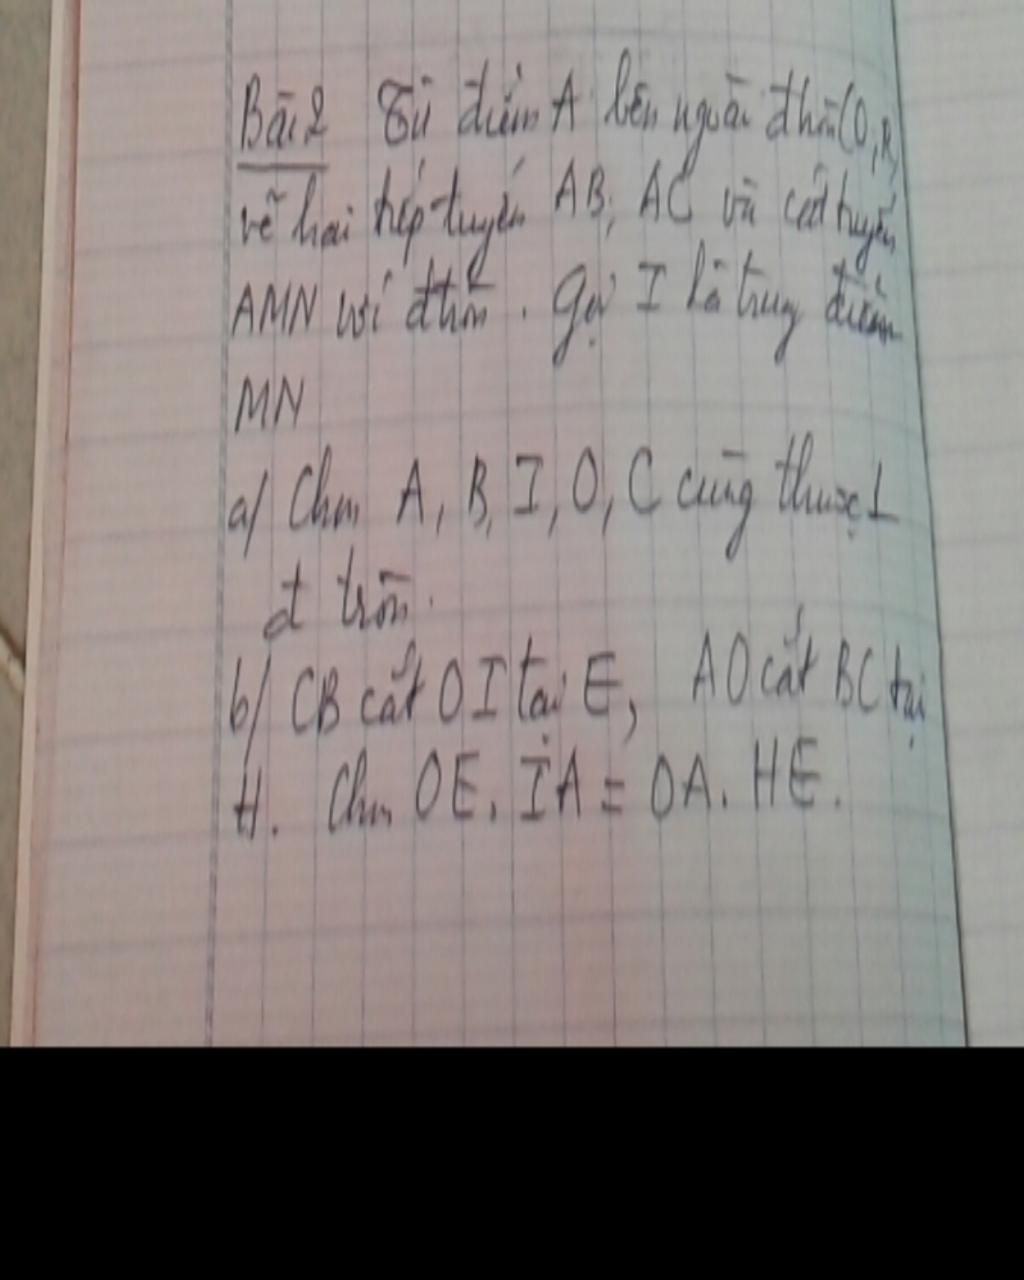 Bài 2 Từ điểm A bên ngoài đtròn (O,R)
vẽ hai tiếp tuyến AB, AC và cát tuyến
AMN với đtròn. Gọi I là trung điểm
MN
a/ Chm A, B, I, O, C cùng thuộc 1
đ tròn.
b/ CB cắt OI tại E, AO cắt BC tại
H. Chm OE. IA = OA. HE.